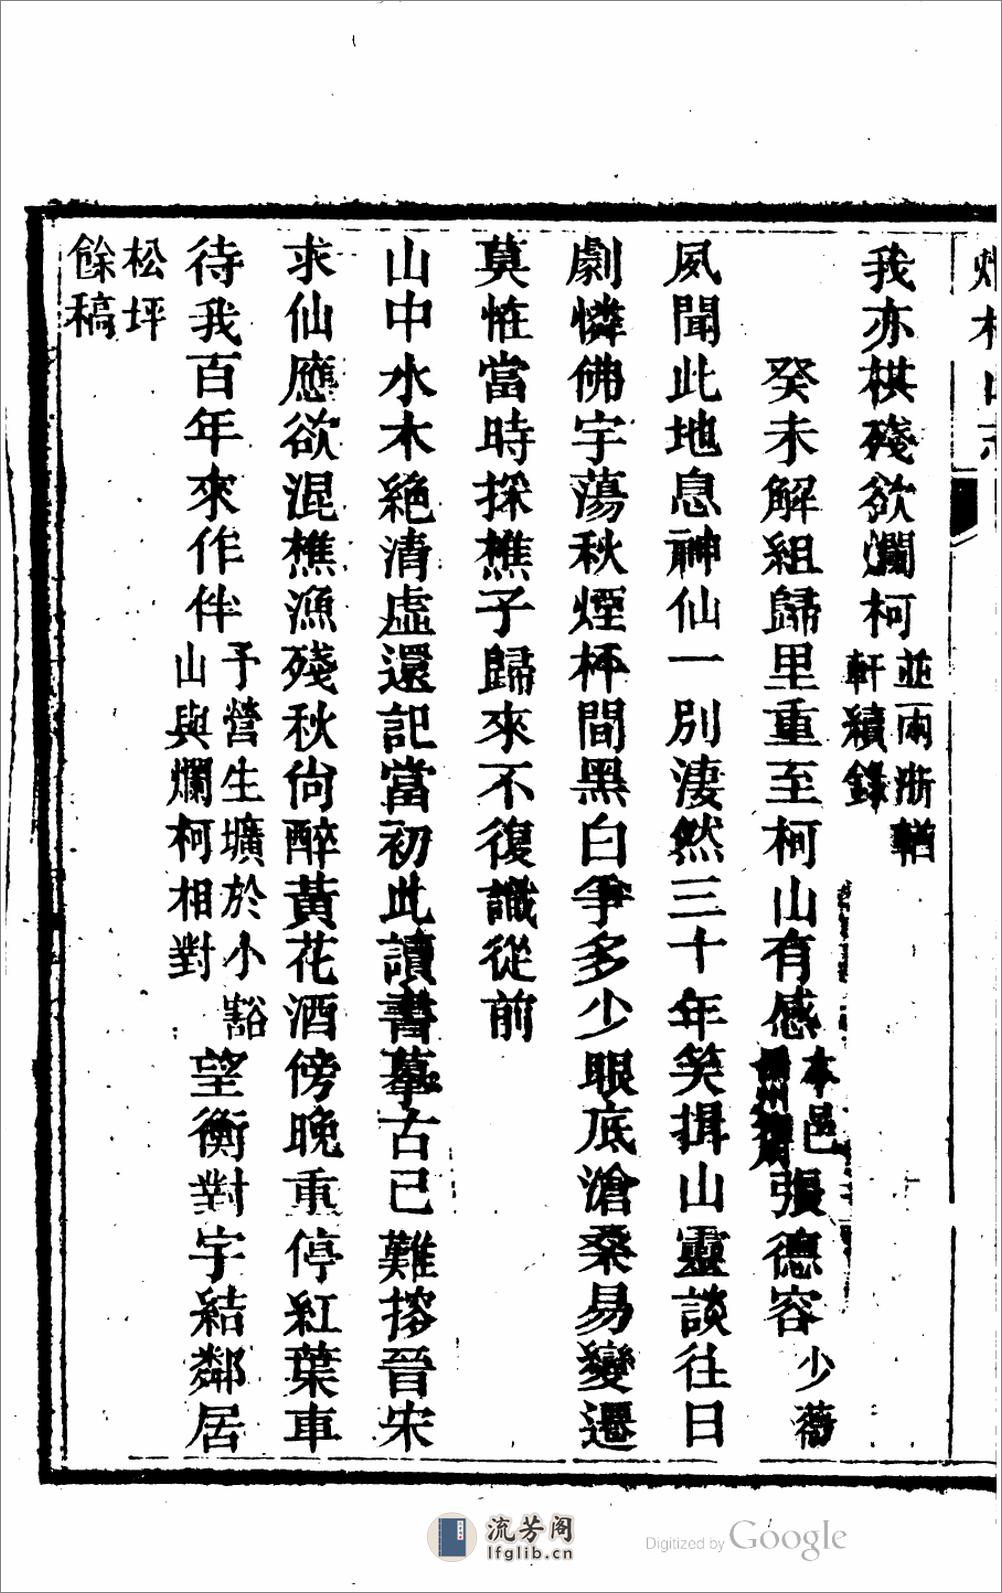 爛柯山志
我亦棋殘欲爛柯並兩浙輶
軒續錄
癸未解組歸里重至柯山有感本邑
張德容少薇
夙聞此地息神仙一別淒然三十年笑揖山靈談往日
劇憐佛宇蕩秋煙枰間黑白爭多少眼底滄桑易變遷
莫怪當時採樵子歸來不復識從前
山中水木絕清虛還記當初此讀書摹古已難摉晉宋
求仙應欲混樵漁殘秋尙醉黃花酒傍晚重停紅葉車
待我百年來作伴予營生壙於小豁
山與爛柯相對望衡對宇結鄰居
松坪
餘稿
流芳阁
lfglib.cn
Digitized by Google